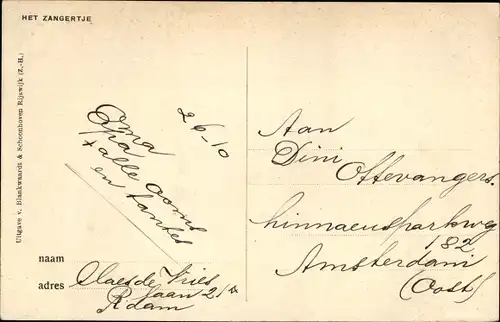 HET ZANGERTJE
Uitgave v. Blankwaardt & Schoonhoven Rijswijk (Z.-H.)
2-6-10
Oma
Opa
+ alle ooms
en tantes
naam
adres Claes de Vries
laan 21a
R'dam
Aan
Dini Ottevangers
Linnaeusparkweg
182
Amsterdam
(Oost)